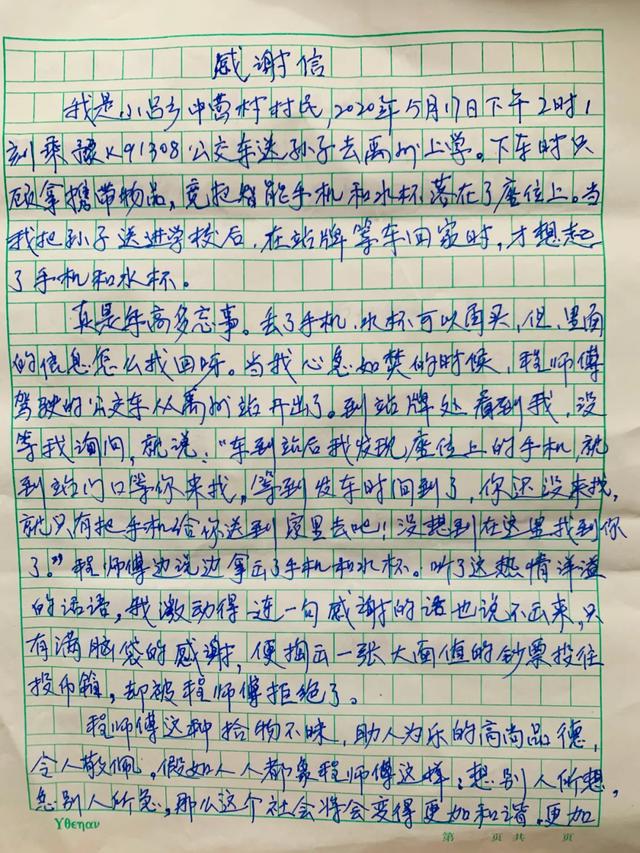 感谢信
我是小吕乡中营村村民，2020年5月17日下午2时1
刻乘坐K91308公交车送孙子去禹州上学。下车时只
顾拿携带物品，竟把智能手机和水杯落在了座位上。当
我把孙子送进学校后，在站牌等车回家时，才想起
了手机和水杯。
真是年高多忘事。丢了手机、水杯可以再买，但，里面
的信息怎么找回呀。当我心急如焚的时候，程师傅
驾驶的公交车从禹州站开出了。到站牌处看到我，没
等我询问，就说："车到站后我发现座位上的手机，就
到站门口等你来找，等到发车时间到了，你还没来找，
就只有把手机给你送到家里去吧！没想到在这里找到你
了。"程师傅边说边拿出了手机和水杯。听了这热情洋溢
的话语，我激动得连一句感谢的话也说不出来，只
有满脑袋的感谢，便掏出一张大面值的钞票投往
投币箱，却被程师傅拒绝了。
程师傅这种拾物不昧，助人为乐的高尚品德，
令人敬佩。假如人人都象程师傅这样：想别人所想，
急别人所急，那么这个社会将会变得更加和谐，更加
Yθεηαν
第 页 共 页